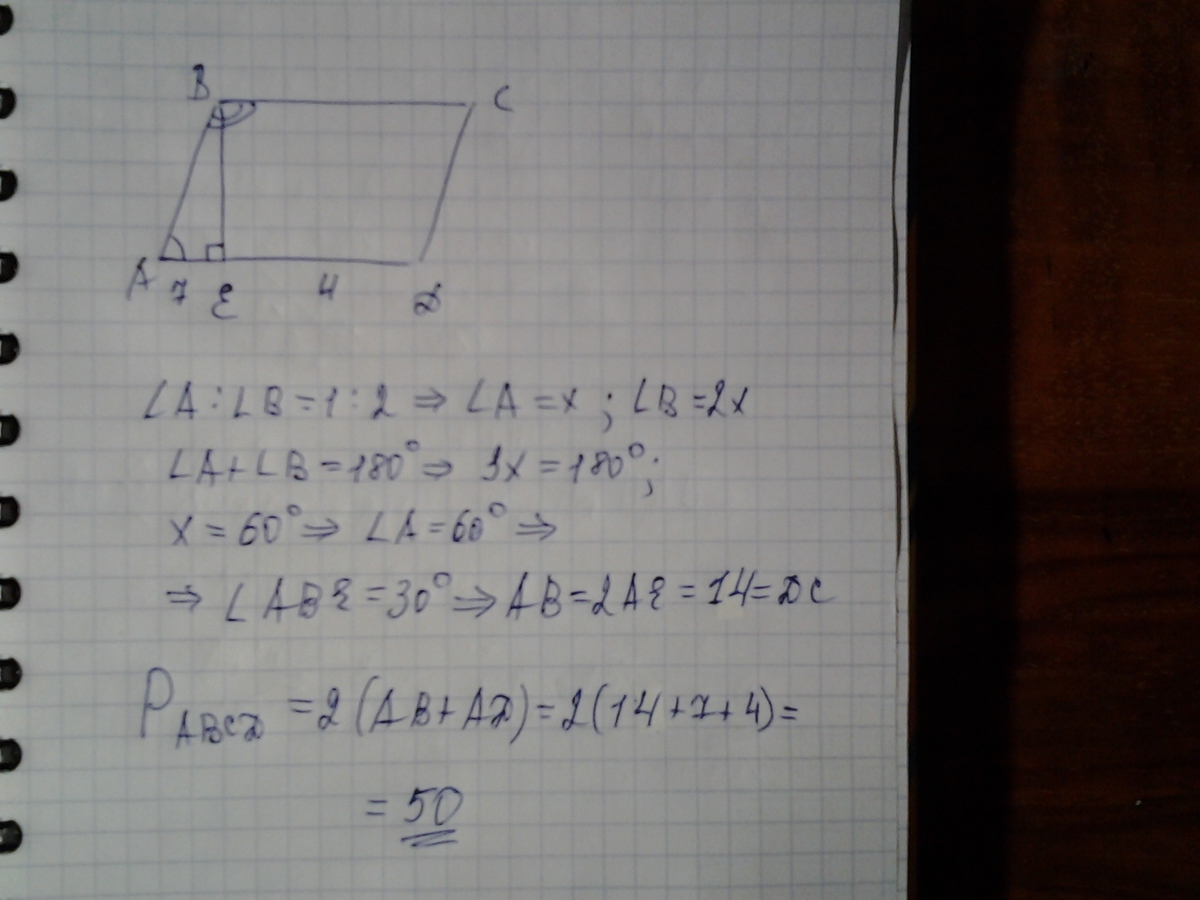 B C
A 7 E 4 D
∠A : ∠B = 1 : 2 ⇒ ∠A = x ; ∠B = 2x
∠A + ∠B = 180° ⇒ 3x = 180° ;
x = 60° ⇒ ∠A = 60° ⇒
⇒ ∠ABE = 30° ⇒ AB = 2AE = 14 = DC
P_ABCD = 2 (AB + AD) = 2 (14 + 7 + 4) =
= 50